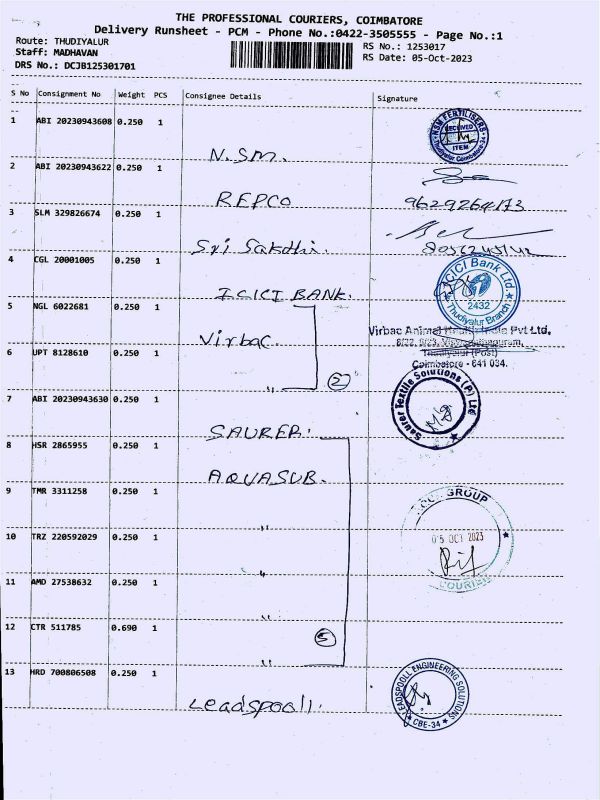 THE PROFESSIONAL COURIERS, COIMBATORE
Delivery Runsheet - PCM - Phone No.:0422-3505555 - Page No.:1
Route: THUDIYALUR
RS No.: 1253017
Staff: MADHAVAN
RS Date: 05-Oct-2023
DRS No.: DCJB125301701
S No Consignment No Weight PCS Consignee Details Signature
1 ABI 20230943608 0.250 1 N.SM.
NSM FERTILISERS
RECEIVED
ITEM
Thudiyalur Coimbatore-34
2 ABI 20230943622 0.250 1 REPCO
9629264173
3 SLM 329826674 0.250 1 Sri Sakdhi.
4 CGL 20001005 0.250 1 ICICI BANK.
ICICI Bank Ltd.
2432
Thudiyalur Branch
5 NGL 6022681 0.250 1 Virbac
Virbac Animal Health India Pvt Ltd,
Thudiyalur (Post)
Coimbatore - 641 034.
6 UPT 8128610 0.250 1 ,,
2
7 ABI 20230943630 0.250 1 SAURER.
Saurer Textile Solutions (P) Ltd
8 HSR 2865955 0.250 1 AQUASUB.
9 TMR 3311258 0.250 1 ,,
GROUP
05 OCT 2023
COURIER
10 TRZ 220592029 0.250 1 ,,
11 AMD 27538632 0.250 1 ,,
12 CTR 511785 0.690 1 ,,
5
13 HRD 700806508 0.250 1 Leadspooll.
LEADSPOOLL ENGINEERING SOLUTIONS
CBE-34